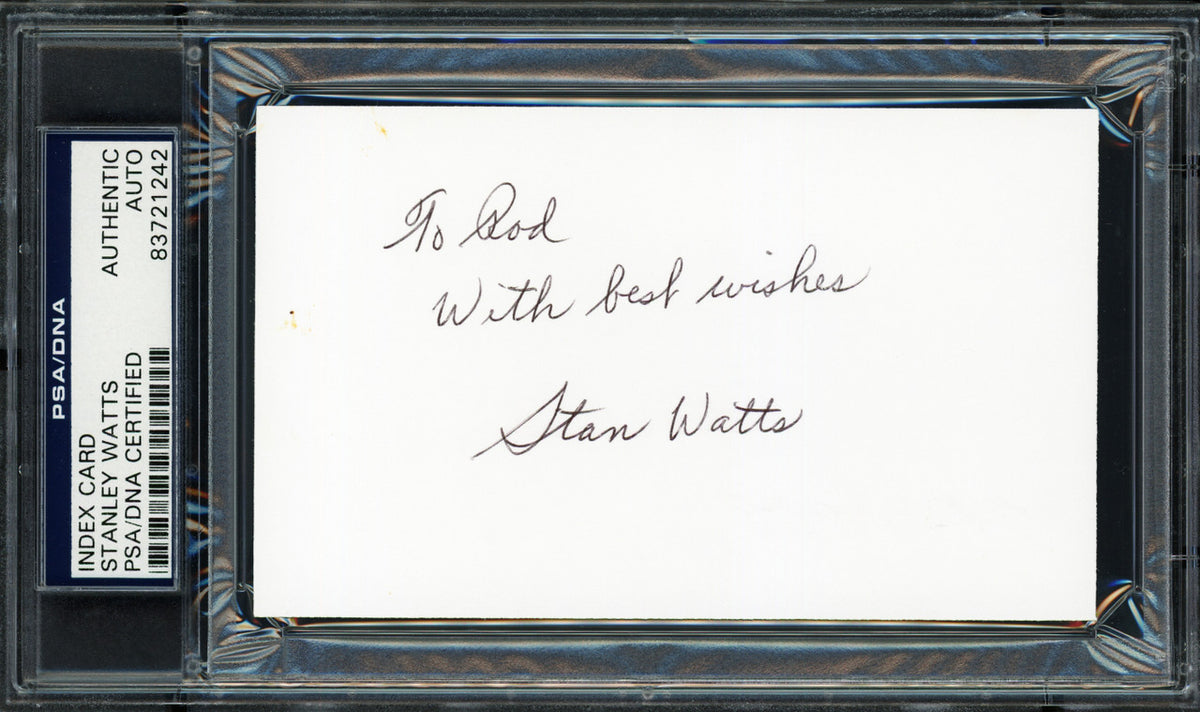 PSA/DNA
INDEX CARD
STANLEY WATTS
PSA/DNA CERTIFIED
AUTHENTIC
AUTO
83721242
To Rod
With best wishes
Stan Watts